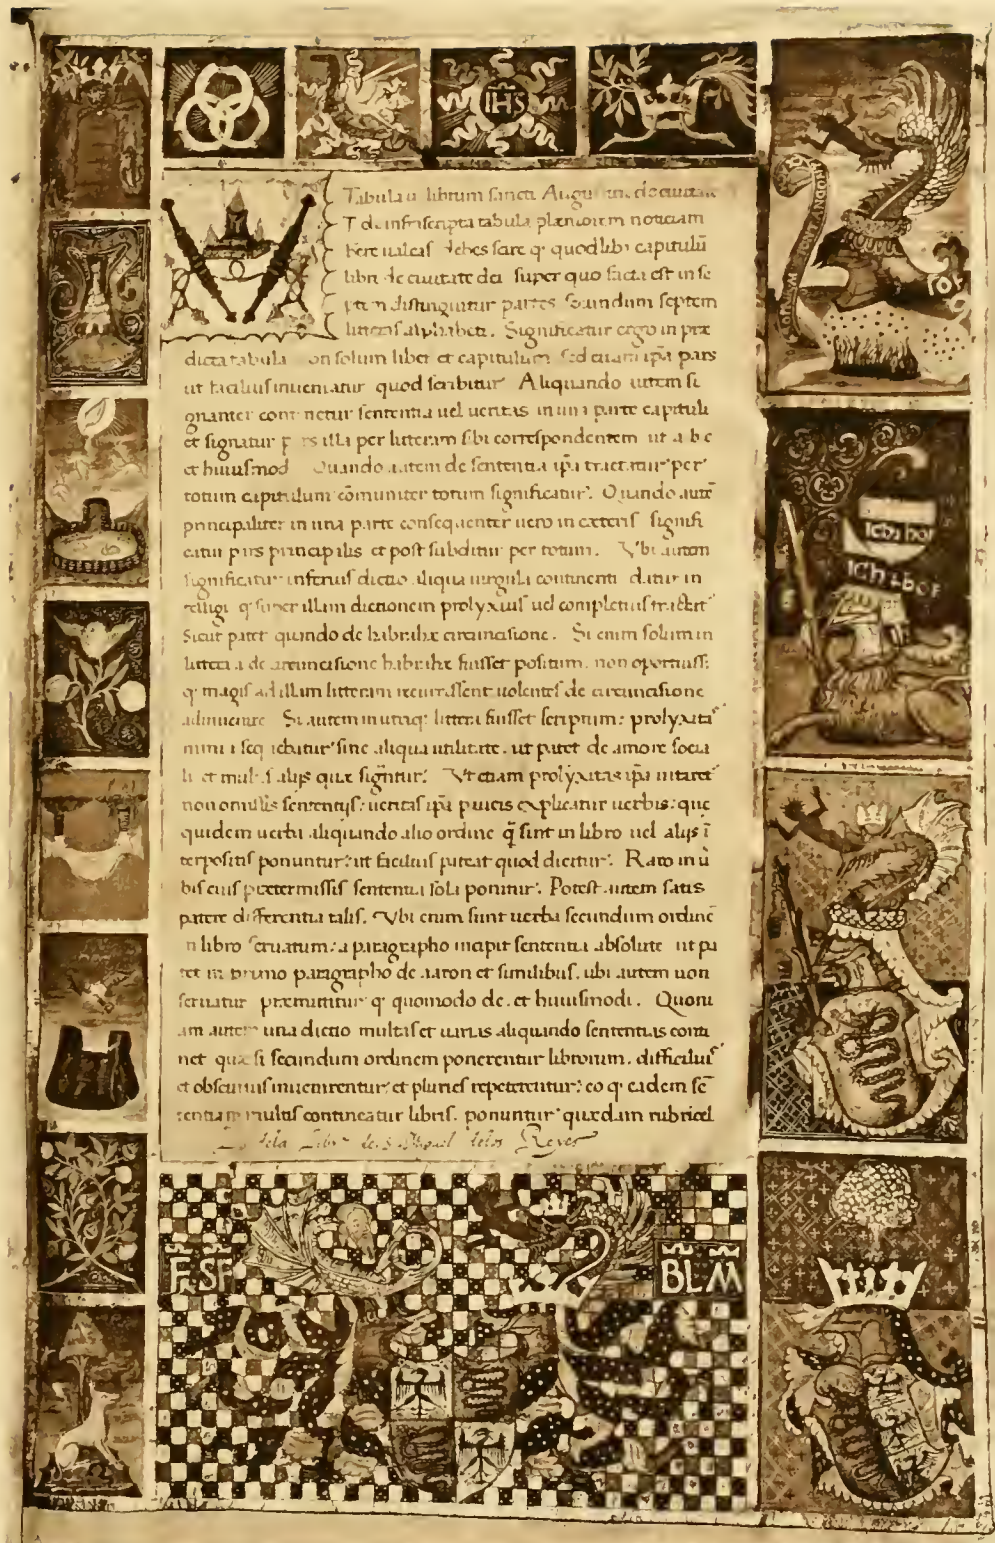 IHS
Tabula librum sancti
T de infrascripta tabula pleniorem noticiam
debes scire q quodlibꝫ capitulū
libri de ciuitate dei super quo facta est in se
ptem distinguitur partes secundum septem
litteras alphabeti. Significatur ergo in præ
dicta tabula on solum liber et capitulum sed etiam ip̄a pars
ut facilius inueniatur quod scribitur Aliquando autem si
gnanter continetur sententia uel ueritas in una parte capituli
et signatur p rs illa per litteram sibi correspondentem ut a b c
et huiusmod Quando autem de sententia ip̄a tractatur per
totum capitulum cōmuniter totum significatur. Quando autē
principaliter in una parte consequenter uero in cæteris signifi
catur pars principalis et post subditur per totum. Vbi autem
significatur inferius dictio aliqua uirgula continenti datur in
telligi q super illam dictionem prolyxius uel completius tractet
Sicut patet quando de habrihæ circuncisione. Si enim solum in
littera a de circuncisione habrihæ fuisset positum. non oportuiss;
q magis ad illam litteram recurrissent uolentes de circuncisione
adinuenire Si autem in utraq; littera fuisset scriptum: prolyxita
nimi a seq uebatur sine aliqua utilitate. ut patet de amore socia
li et mul s alijs quæ sign̄tur. Vt etiam prolyxitas ip̄a uitaret
non nullis sententijs: ueritas ip̄a paucis explicatur uerbis: que
quidem uerba aliquando alio ordine q̄ sint in libro uel alijs ī
terpositis ponuntur: ut facilius pateat quod dicitur. Raro in ū
bis eius prætermissis sententia sola ponitur. Potest autem satis
patere differentia talis. Vbi enim sunt uerba secundum ordinē
n libro seruatum: a paragrapho incipit sententia absolute ut pa
tet in primo paragrapho de aaron et similibus. ubi autem non
seruatur præmittitur q quomodo de. et huiusmodi. Quoni
am autem una dictio multas et uarias aliquando sententias conti
net quæ si secundum ordinem ponerentur librorum. difficilius
et obscurius inuenirentur: et pluries repeterentur: eo q eadem sē
tentiam multis contineatur libris. ponuntur quædam rubricel
de la Libr.ª de S. Miguel de los Reyes
Ich hor
Ich hor
F. SF
BLM